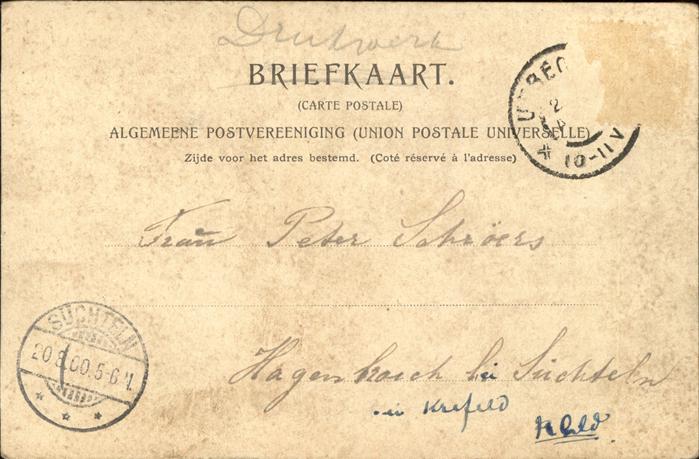 Drukwerk
BRIEFKAART.
(CARTE POSTALE)
ALGEMEENE POSTVEREENIGING (UNION POSTALE UNIVERSELLE)
Zijde voor het adres bestemd. (Coté réservé à l'adresse)
10-11 V
Frau Peter Schröers
SÜCHTELN
20.8.00.5-6 V.
Hagenbroich bei Süchteln
bei Krefeld
Rhld.